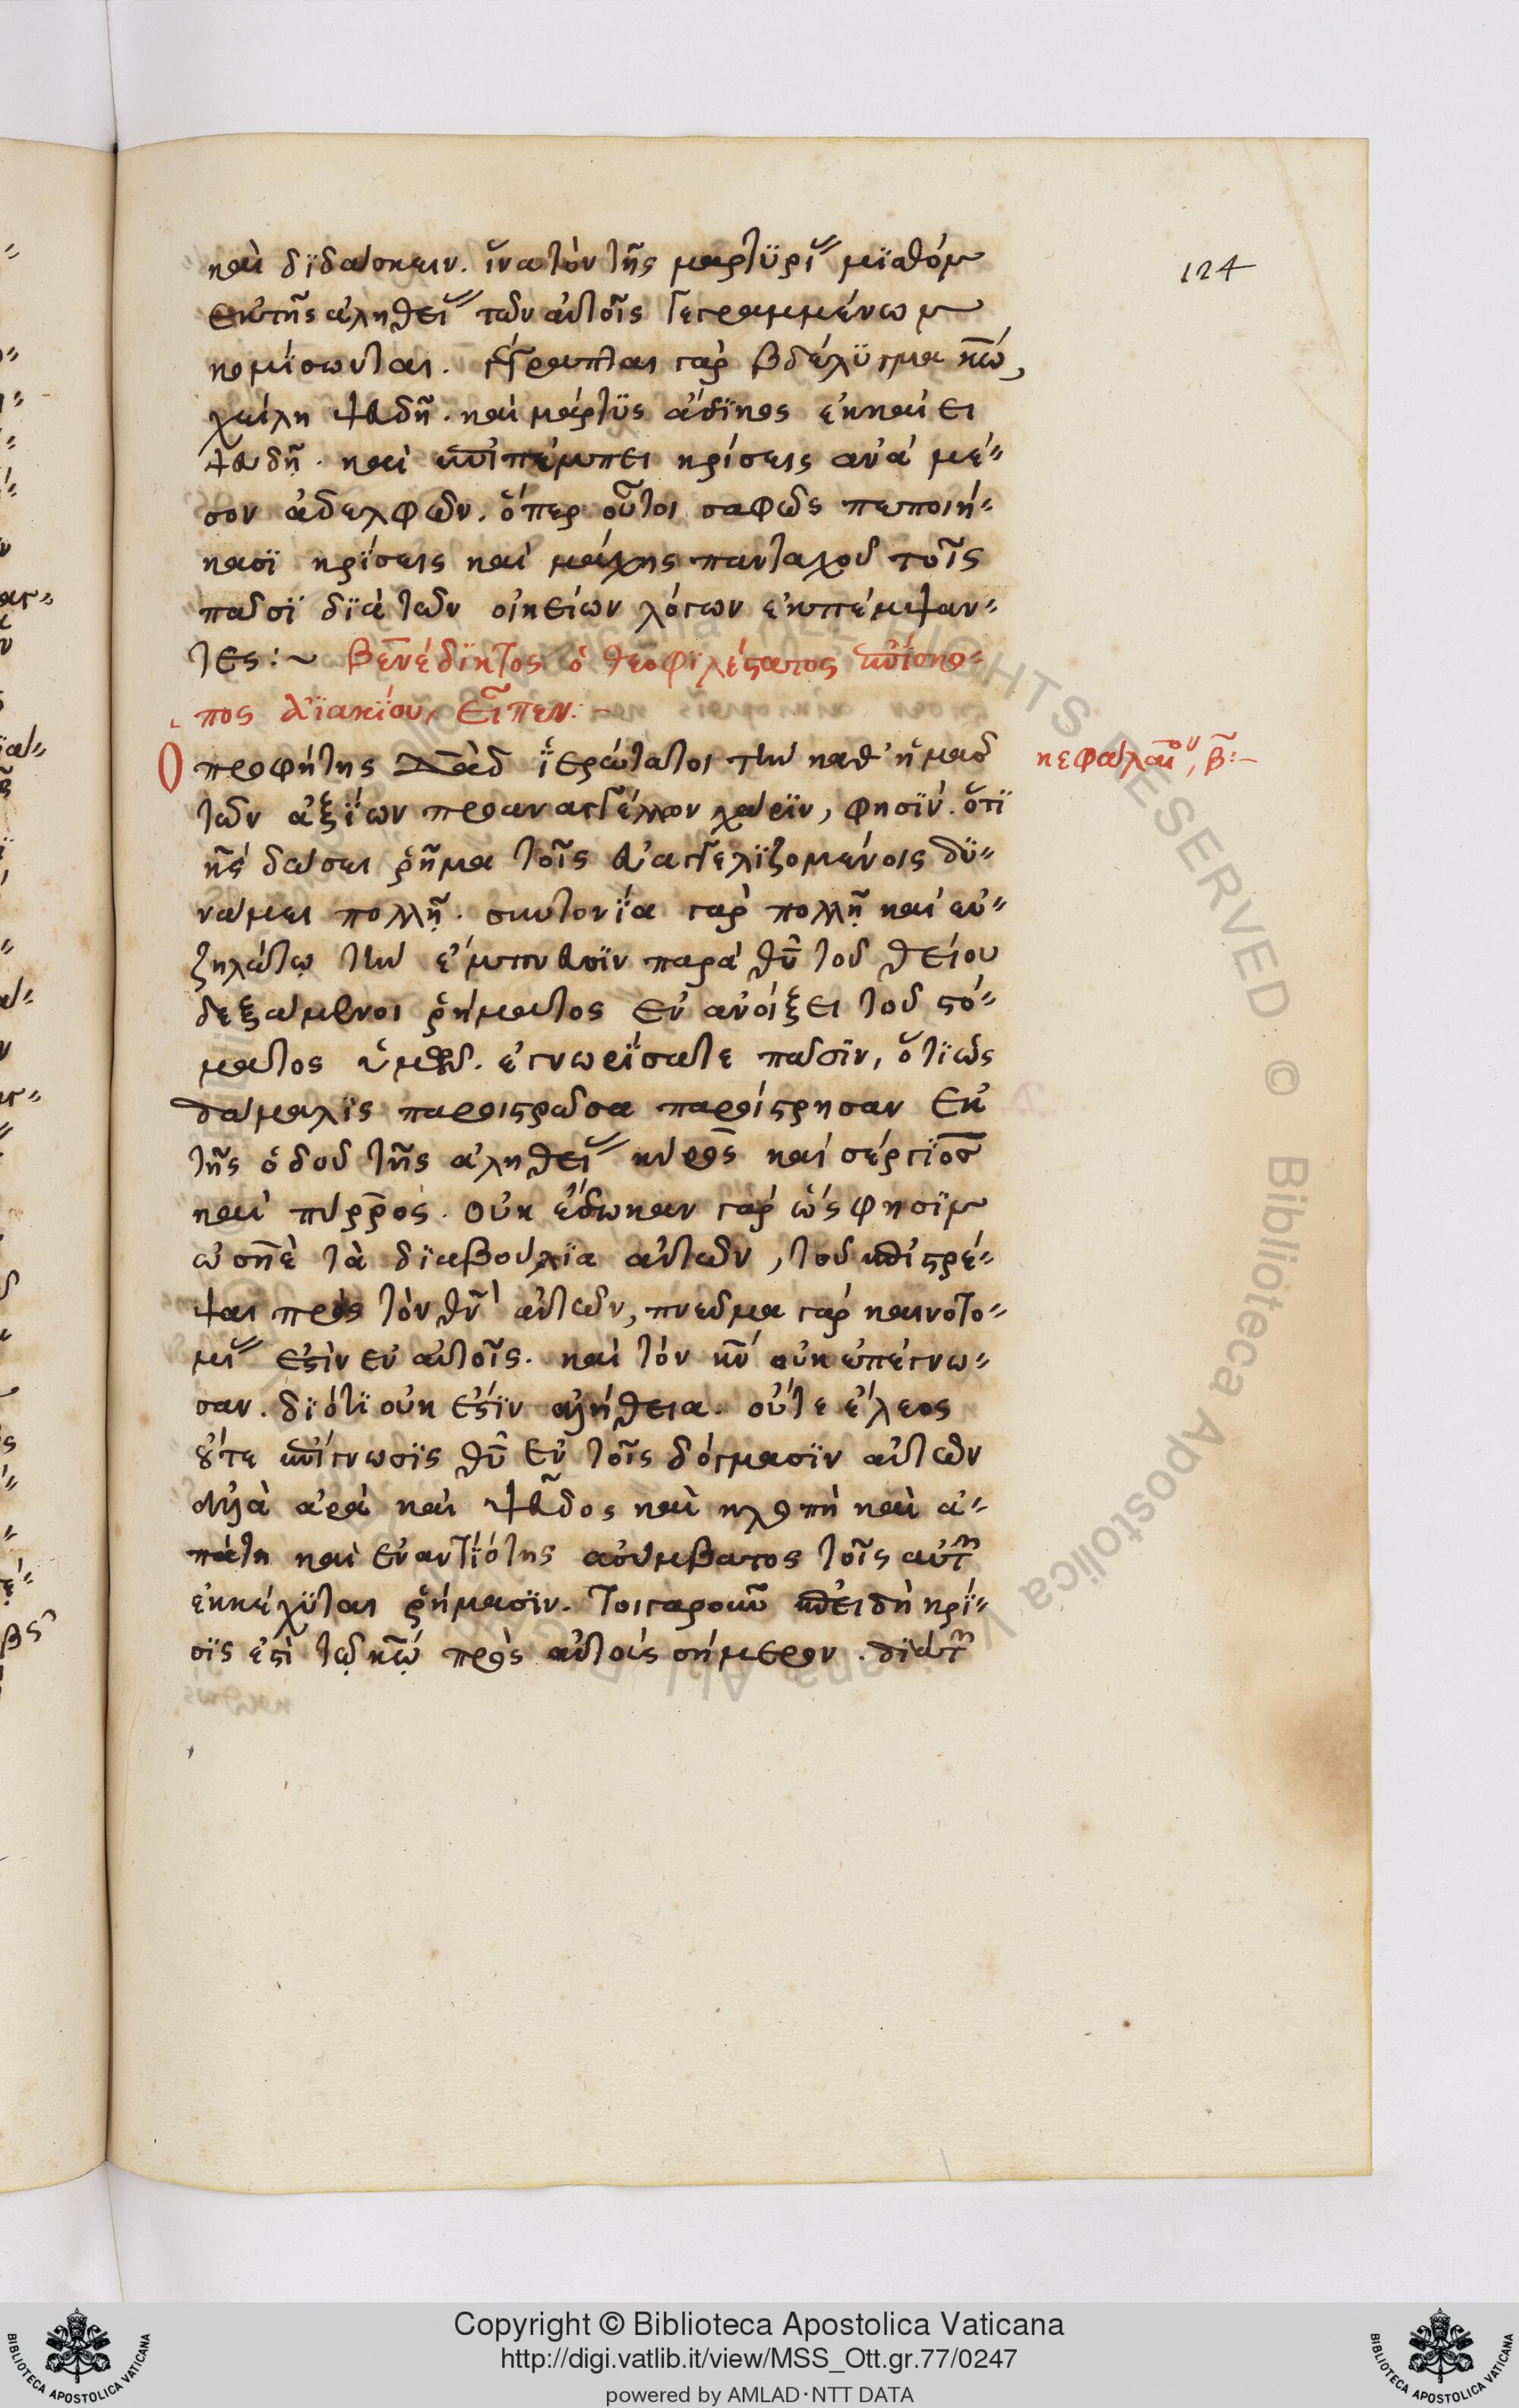 καὶ διδάσκειν. ἵνα τὸν τῆς μαρτυρί(ας) μιασμὸν
ἐκ τῆς ἀληθεί(ας) τῶν αὐτοῖς γεγραμμένων
κομίσωνται. γέγραπται γὰρ βδέλυγμα κ̅ω̅,
χείλη ψευδῆ. καὶ μάρτυς ἄδικος ἐκκαίει
ψευδῆ. καὶ ἐπιπέμπει κρίσεις ἀνὰ μέ-
σον ἀδελφῶν. ὅπερ οὗτοι σαφῶς πεποιή-
κασι κρίσεις καὶ μάχης πανταχοῦ τοῖς
πᾶσι διὰ τῶν οἰκείων λόγων ἐκπέμψαν-
τες:~ Βενέδικτος ὁ θεοφιλέστατος ἐπίσκο-
πος Αἰακίου, εἶπεν:-
Ὁ προφήτης Δ̅α̅δ̅ ἱερώτατοι τὴν καθ' ἡμᾶς κεφάλαιον, β:-
τῶν ἀξίων προαναγγέλλων χάριν, φησίν. ὅτι
κ̅ς̅ δώσει ῥῆμα τοῖς εὐαγγελιζομένοις δυ-
νάμει πολλῇ. συντονία γὰρ πολλῇ καὶ εὐ-
ζηλώτω τὴν ἔμπνευσιν παρὰ θ̅υ̅ τοῦ θείου
δεξάμενοι ῥήματος ἐν ἀνοίξει τοῦ στό-
ματος ὑμῶν. ἐγνωρίσατε πᾶσιν, ὅτι ὡς
δάμαλις παροιστρῶσα παροίστρησαν ἐκ
τῆς ὁδοῦ τῆς ἀληθεί(ας) κύρος καὶ σέργιος
καὶ πύρρος. οὐκ ἔδωκαν γὰρ ὥς φησιν
ὡσηὲ τὰ διαβούλια αὐτῶν, τοῦ ἐπιστρέ-
ψαι πρὸς τὸν θ̅ν̅ αὐτῶν, πνεῦμα γὰρ καινοτο-
μί(ας) ἐστὶν ἐν αὐτοῖς. καὶ τὸν κ̅ν̅ οὐκ ἐπέγνω-
σαν. διότι οὐκ ἔστιν ἀλήθεια. οὔτε ἔλεος
οὔτε ἐπίγνωσις θ̅υ̅ ἐν τοῖς δόγμασιν αὐτῶν
ἀλλὰ ἀρὰ καὶ ψεῦδος καὶ κλοπὴ καὶ ἀ-
πάτη καὶ ἐναντιότης ἀσύμβατος τοῖς αὐτῶν
ἐκκέχυται ῥήμασιν. τοιγαροῦν ἐπειδὴ κρί-
σις ἐστὶ τῷ κ̅ω̅ πρὸς αὐτοὺς σήμερον. δι' αὐτῶν
καθως
124
Copyright © Biblioteca Apostolica Vaticana
http://digi.vatlib.it/view/MSS_Ott.gr.77/0247
powered by AMLAD·NTT DATA